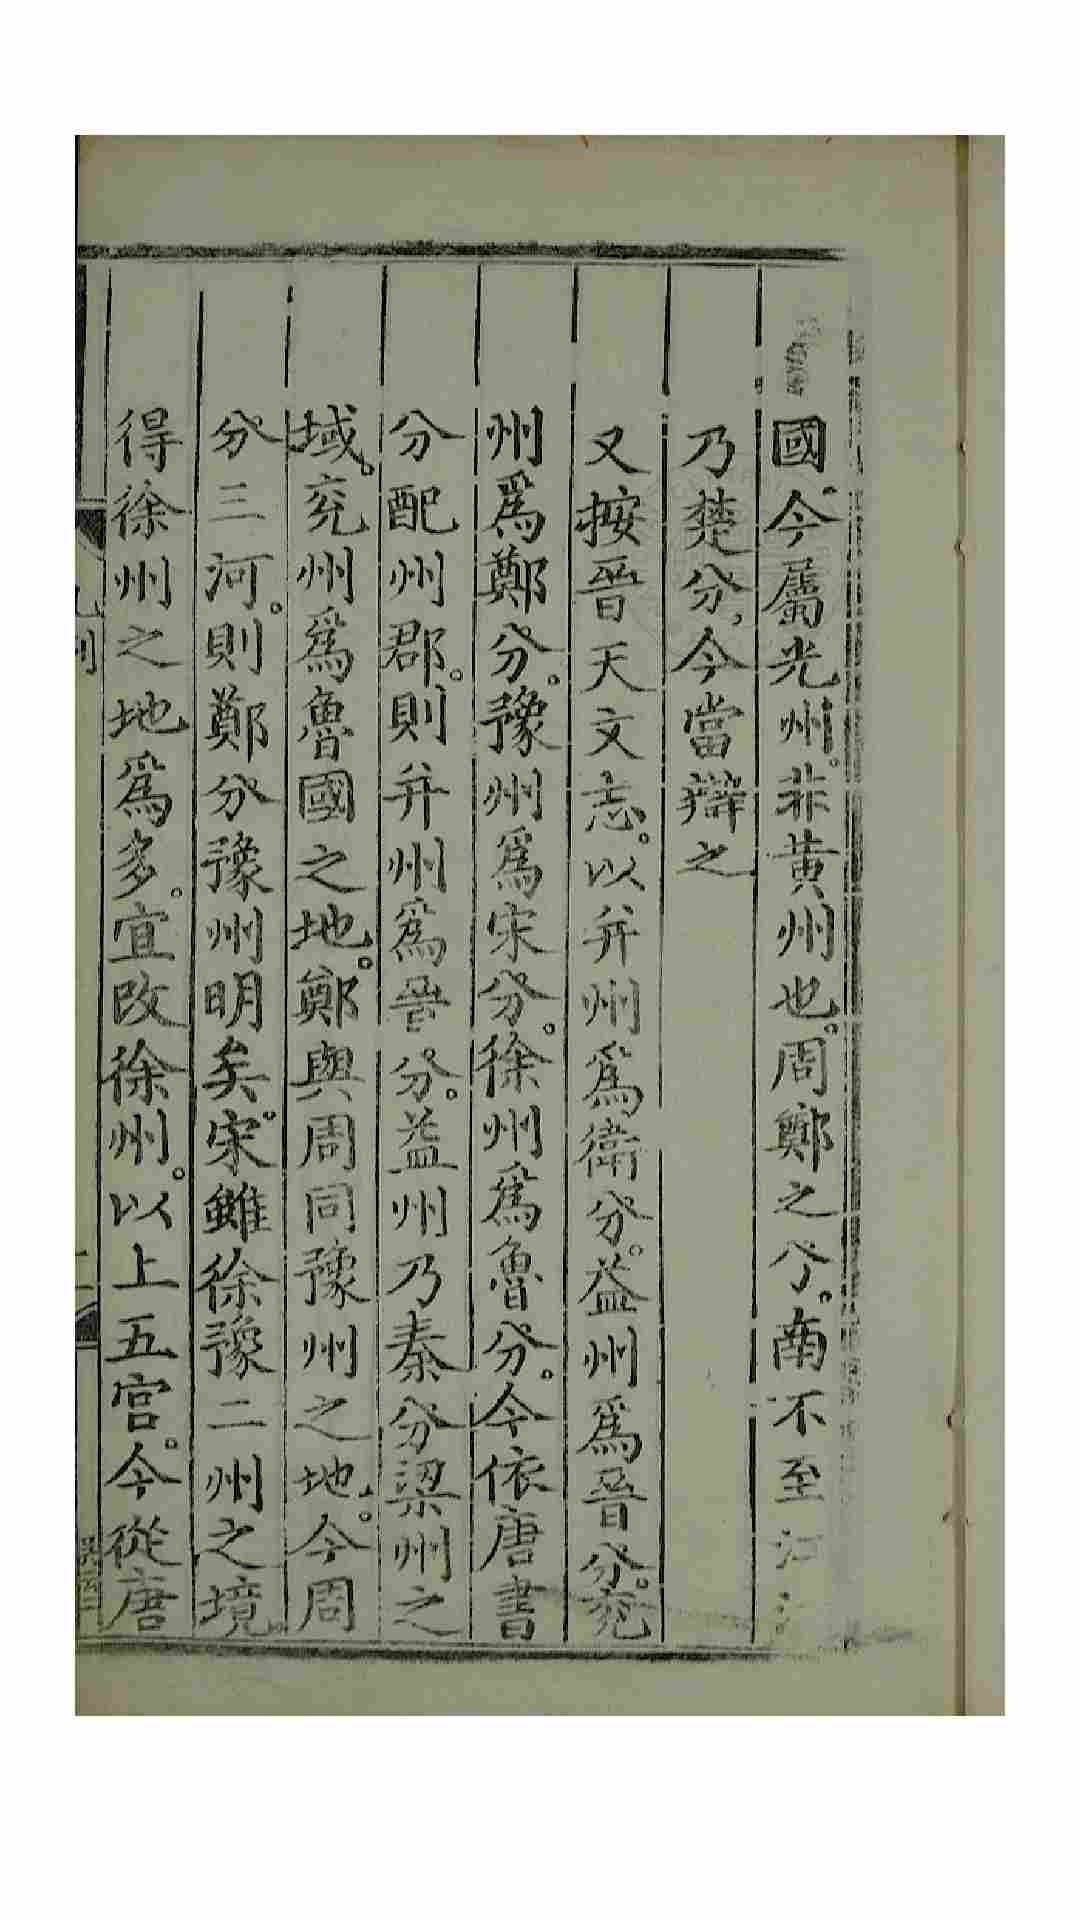 國今屬光州。非黃州也。周鄭之分。南不至
乃楚分，今當辯之
又按晉天文志。以并州爲衛分。益州爲晉分。兖
州爲鄭分。豫州爲宋分。徐州爲魯分。今依唐書
分配州郡。則并州爲晉分。益州乃秦分梁州之
域。兖州爲魯國之地。鄭與周同豫州之地。今周
分三河。則鄭分豫州明矣。宋雖徐豫二州之境。
得徐州之地爲多。宜改徐州。以上五宮。今從唐